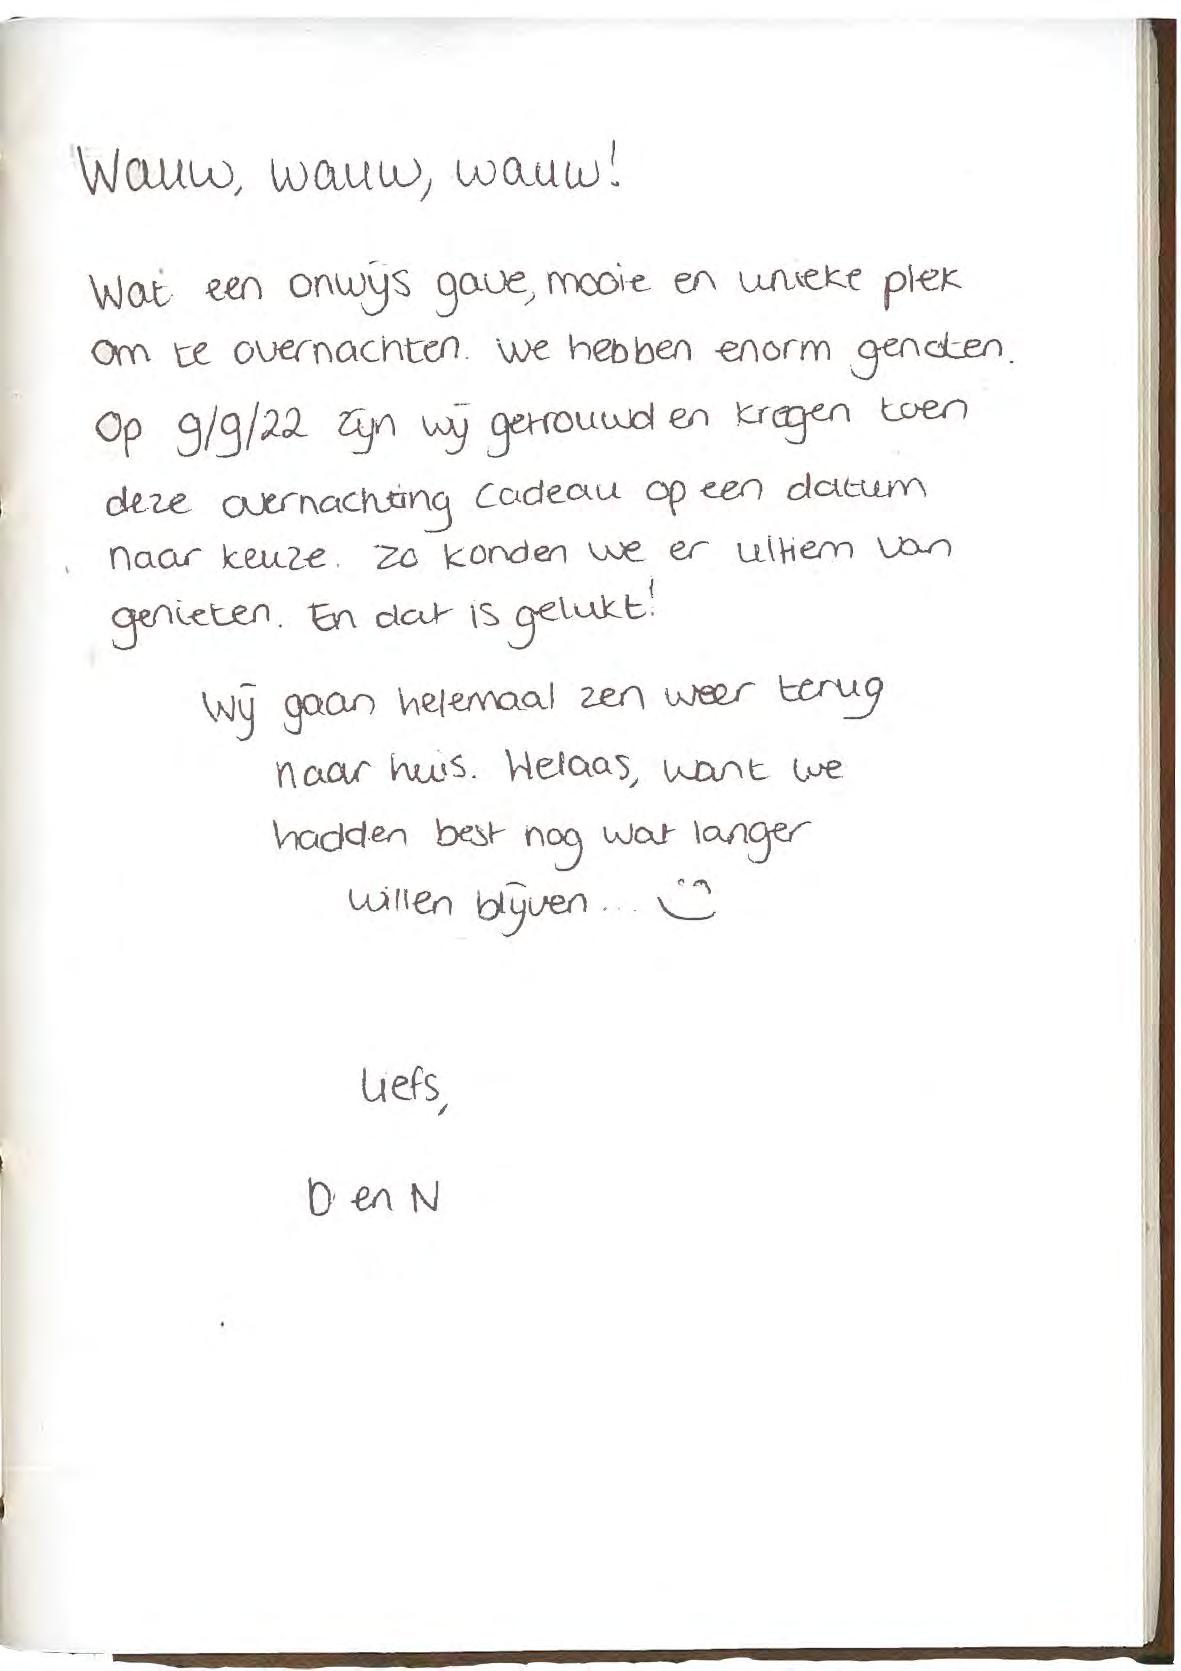 Wauw, wauw, wauw!
Wat een onwijs gave, mooie en unieke plek
om te overnachten. We hebben enorm genoten.
Op 9/9/22 zijn wij getrouwd en kregen toen
deze overnachting cadeau op een datum
naar keuze. Zo konden we er ultiem van
genieten. En dat is gelukt!
Wij gaan helemaal zen weer terug
naar huis. Helaas, want we
hadden best nog wat langer
willen blijven...
Liefs,
D en N